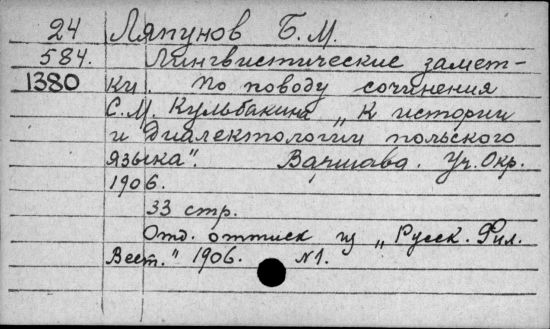 24 Ляпунов Б. М.
584. Лингвистические замет-
1380 ки. По поводу сочинения
С. М. Кульбакина „К истории
и диалектологии польского
языка". Варшава. Уч. Окр.
1906.
33 стр.
Отд. оттиск из „Русск. Фил.
Вест." 1906. №1.